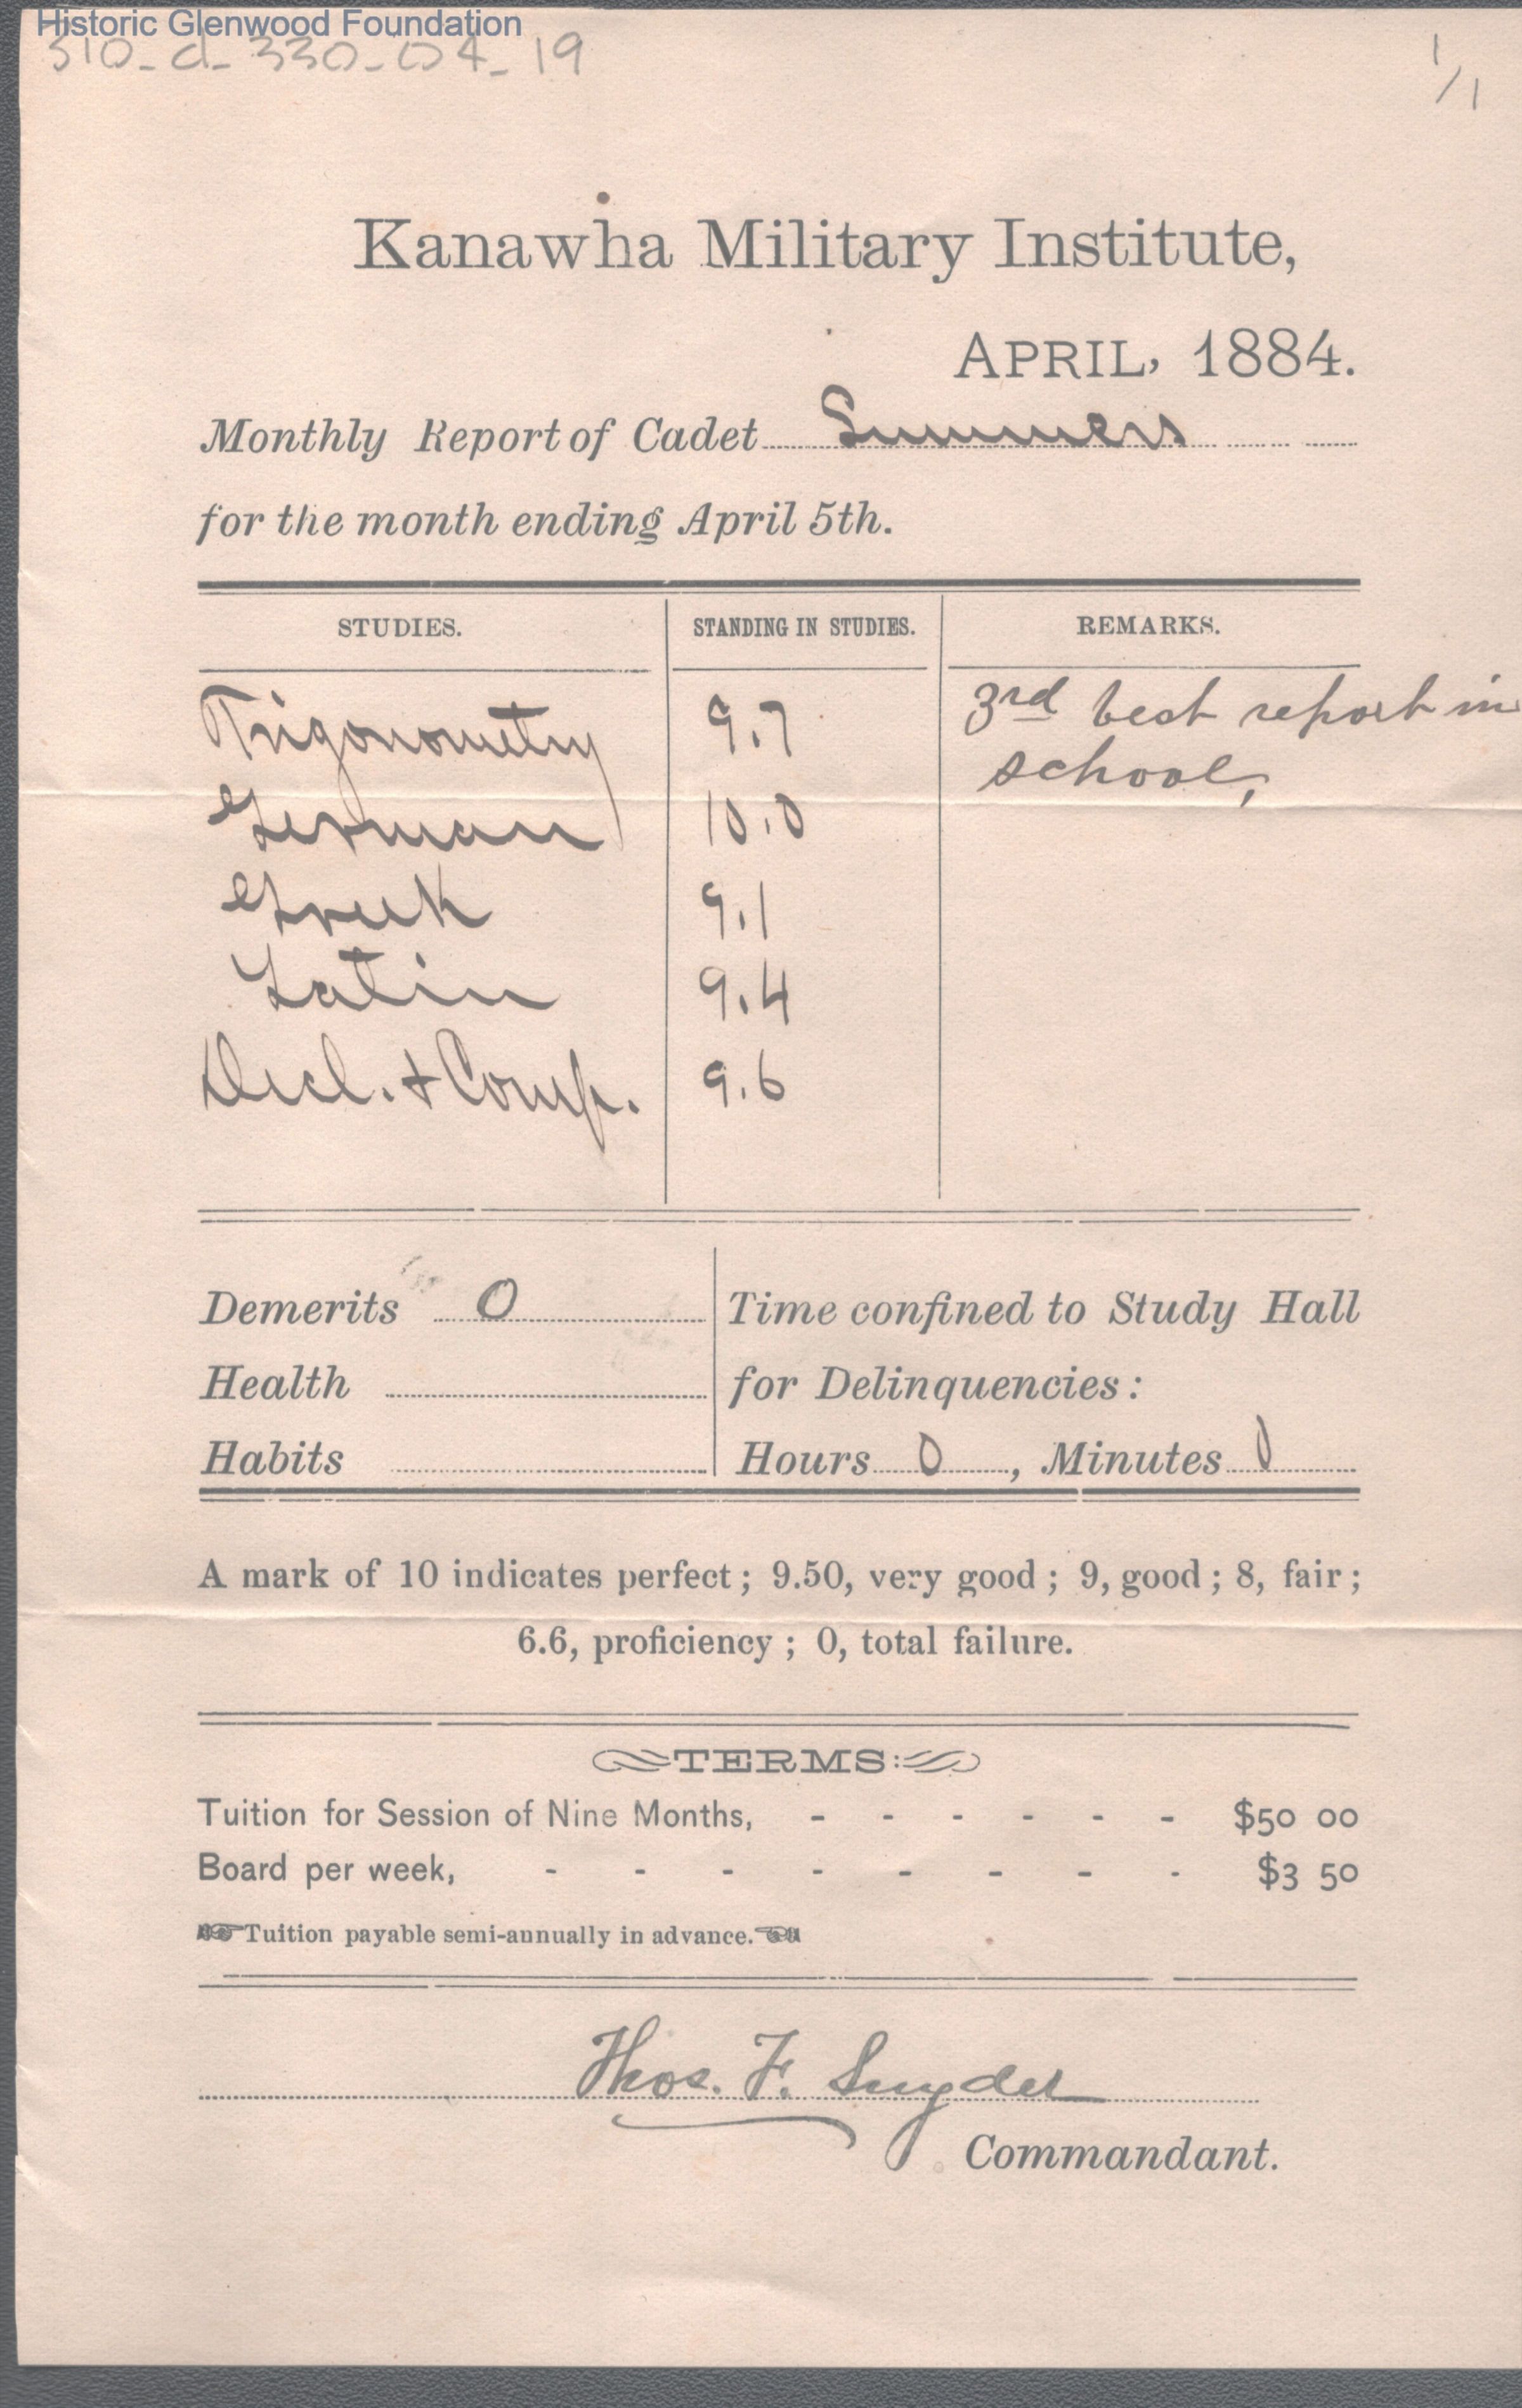 Historic Glenwood Foundation
310_d_330_04_19
1/1
Kanawha Military Institute,
APRIL, 1884.
Monthly Report of Cadet Summers
for the month ending April 5th.
STUDIES. STANDING IN STUDIES. REMARKS.
Trigonometry 9.7 3rd best report in
school,
German 10.0
Greek 9.1
Latin 9.4
Decl. + Comp. 9.6
Demerits 0 Time confined to Study Hall
Health for Delinquencies:
Habits Hours 0, Minutes 0
A mark of 10 indicates perfect; 9.50, very good; 9, good; 8, fair;
6.6, proficiency; 0, total failure.
TERMS:
Tuition for Session of Nine Months, - - - - - - $50 00
Board per week, - - - - - - - - $3 50
☞Tuition payable semi-annually in advance.☜
Thos. F. Snyder
Commandant.